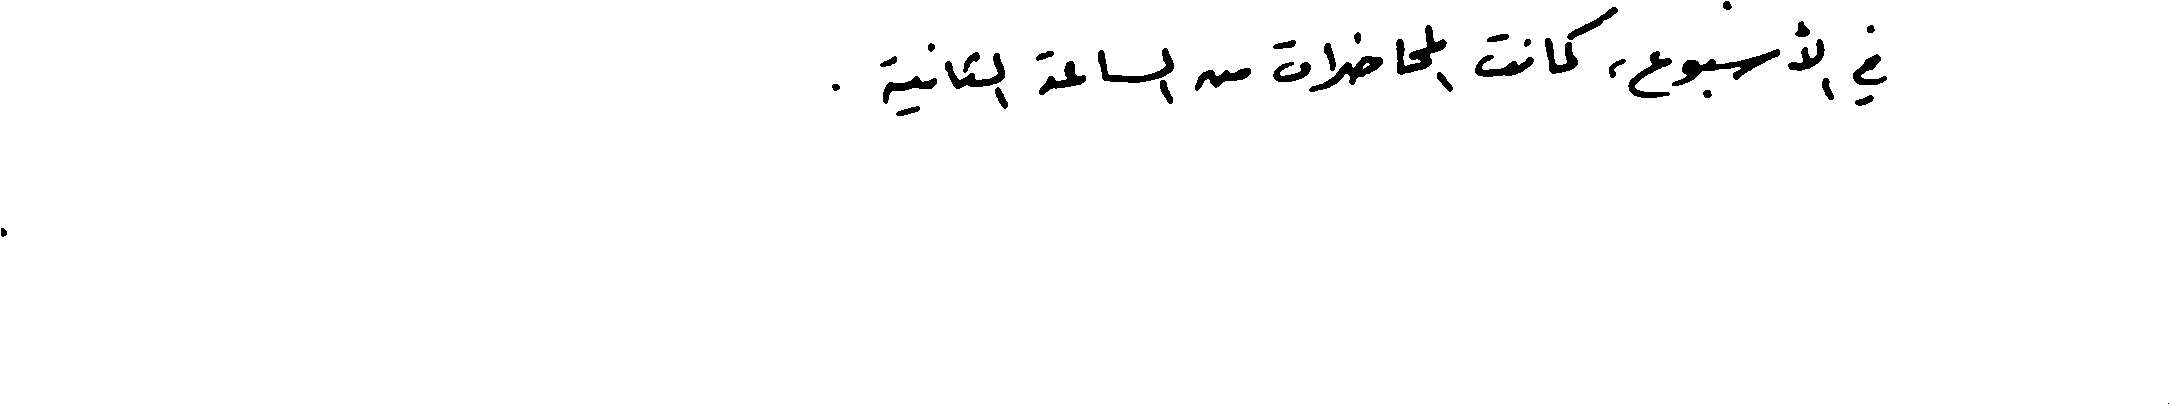 في الأسبوع، كانت المحاضرات من الساعة الثانية .